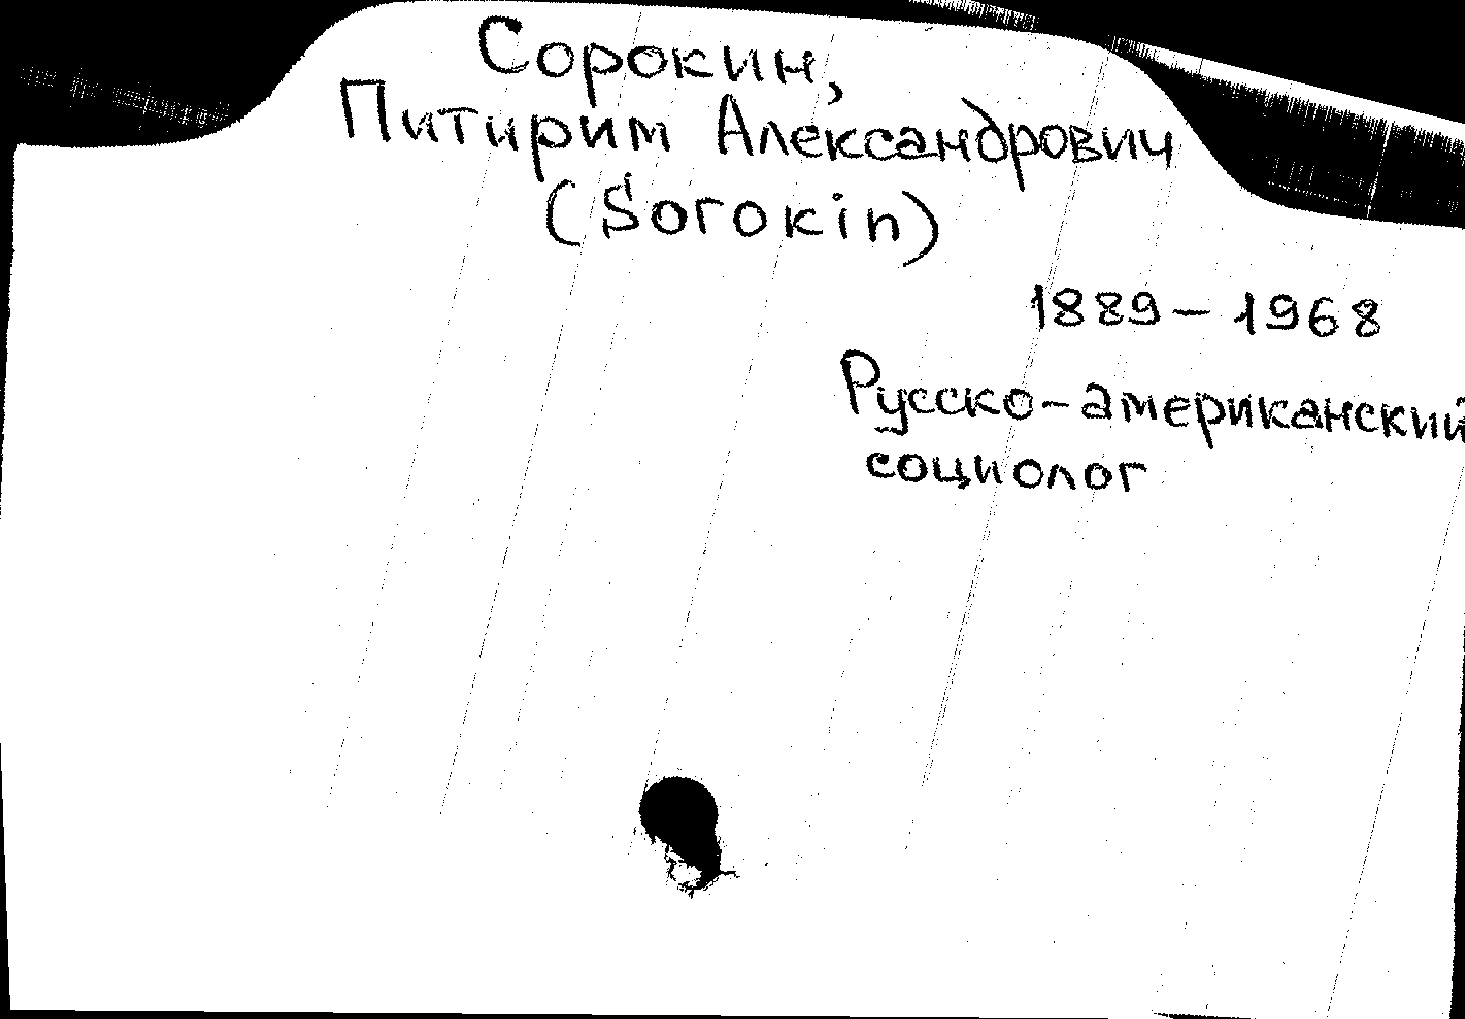 Сорокин,
Питирим Александрович
(Sorokin)
1889 – 1968
Русско-американский
социолог